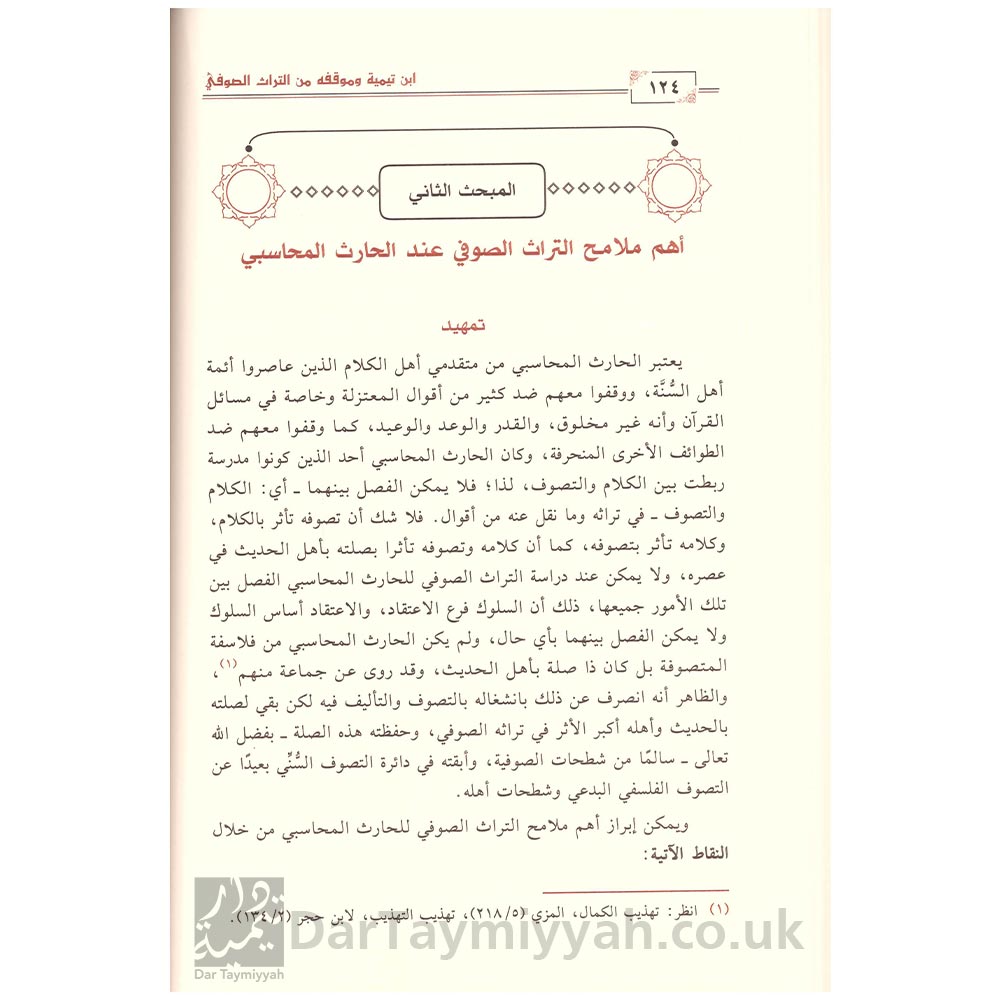 ١٢٤
ابن تيمية وموقفه من التراث الصوفي
المبحث الثاني
أهم ملامح التراث الصوفي عند الحارث المحاسبي
تمهيد
يعتبر الحارث المحاسبي من متقدمي أهل الكلام الذين عاصروا أئمة
أهل السُّنَّة، ووقفوا معهم ضد كثير من أقوال المعتزلة وخاصة في مسائل
القرآن وأنه غير مخلوق، والقدر والوعد والوعيد، كما وقفوا معهم ضد
الطوائف الأخرى المنحرفة، وكان الحارث المحاسبي أحد الذين كونوا مدرسة
ربطت بين الكلام والتصوف، لذا؛ فلا يمكن الفصل بينهما ـ أي: الكلام
والتصوف ـ في تراثه وما نقل عنه من أقوال. فلا شك أن تصوفه تأثر بالكلام،
وكلامه تأثر بتصوفه، كما أن كلامه وتصوفه تأثرا بصلته بأهل الحديث في
عصره، ولا يمكن عند دراسة التراث الصوفي للحارث المحاسبي الفصل بين
تلك الأمور جميعها، ذلك أن السلوك فرع الاعتقاد، والاعتقاد أساس السلوك
ولا يمكن الفصل بينهما بأي حال، ولم يكن الحارث المحاسبي من فلاسفة
المتصوفة بل كان ذا صلة بأهل الحديث، وقد روى عن جماعة منهم(١)،
والظاهر أنه انصرف عن ذلك بانشغاله بالتصوف والتأليف فيه لكن بقي لصلته
بالحديث وأهله أكبر الأثر في تراثه الصوفي، وحفظته هذه الصلة ـ بفضل الله
تعالى ـ سالمًا من شطحات الصوفية، وأبقته في دائرة التصوف السُّنِّي بعيدًا عن
التصوف الفلسفي البدعي وشطحات أهله.
ويمكن إبراز أهم ملامح التراث الصوفي للحارث المحاسبي من خلال
النقاط الآتية:
(١) انظر: تهذيب الكمال، المزي (٢١٨/٥)، تهذيب التهذيب، لابن حجر (١٣٤/٢).
دار تيمية
Dar Taymiyyah
DarTaymiyyah.co.uk